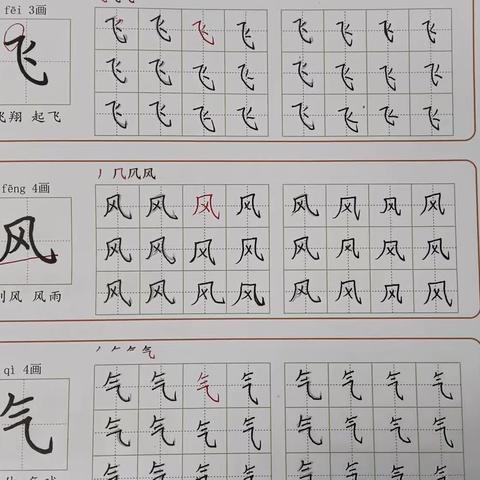 fēi 3画
飞
飞 飞 飞 飞 飞 飞 飞 飞
飞 飞 飞 飞 飞 飞 飞 飞
飞 飞 飞 飞 飞 飞 飞 飞
飞翔 起飞
fēng 4画
丿 几 风 风
风
风 风 风 风 风 风 风 风
风 风 风 风 风 风 风 风
风 风 风 风 风 风 风 风
刮风 风雨
qì 4画
气
气
气 气 气 气 气 气 气 气
气 气 气 气 气 气 气 气
气 气 气 气 气 气 气 气